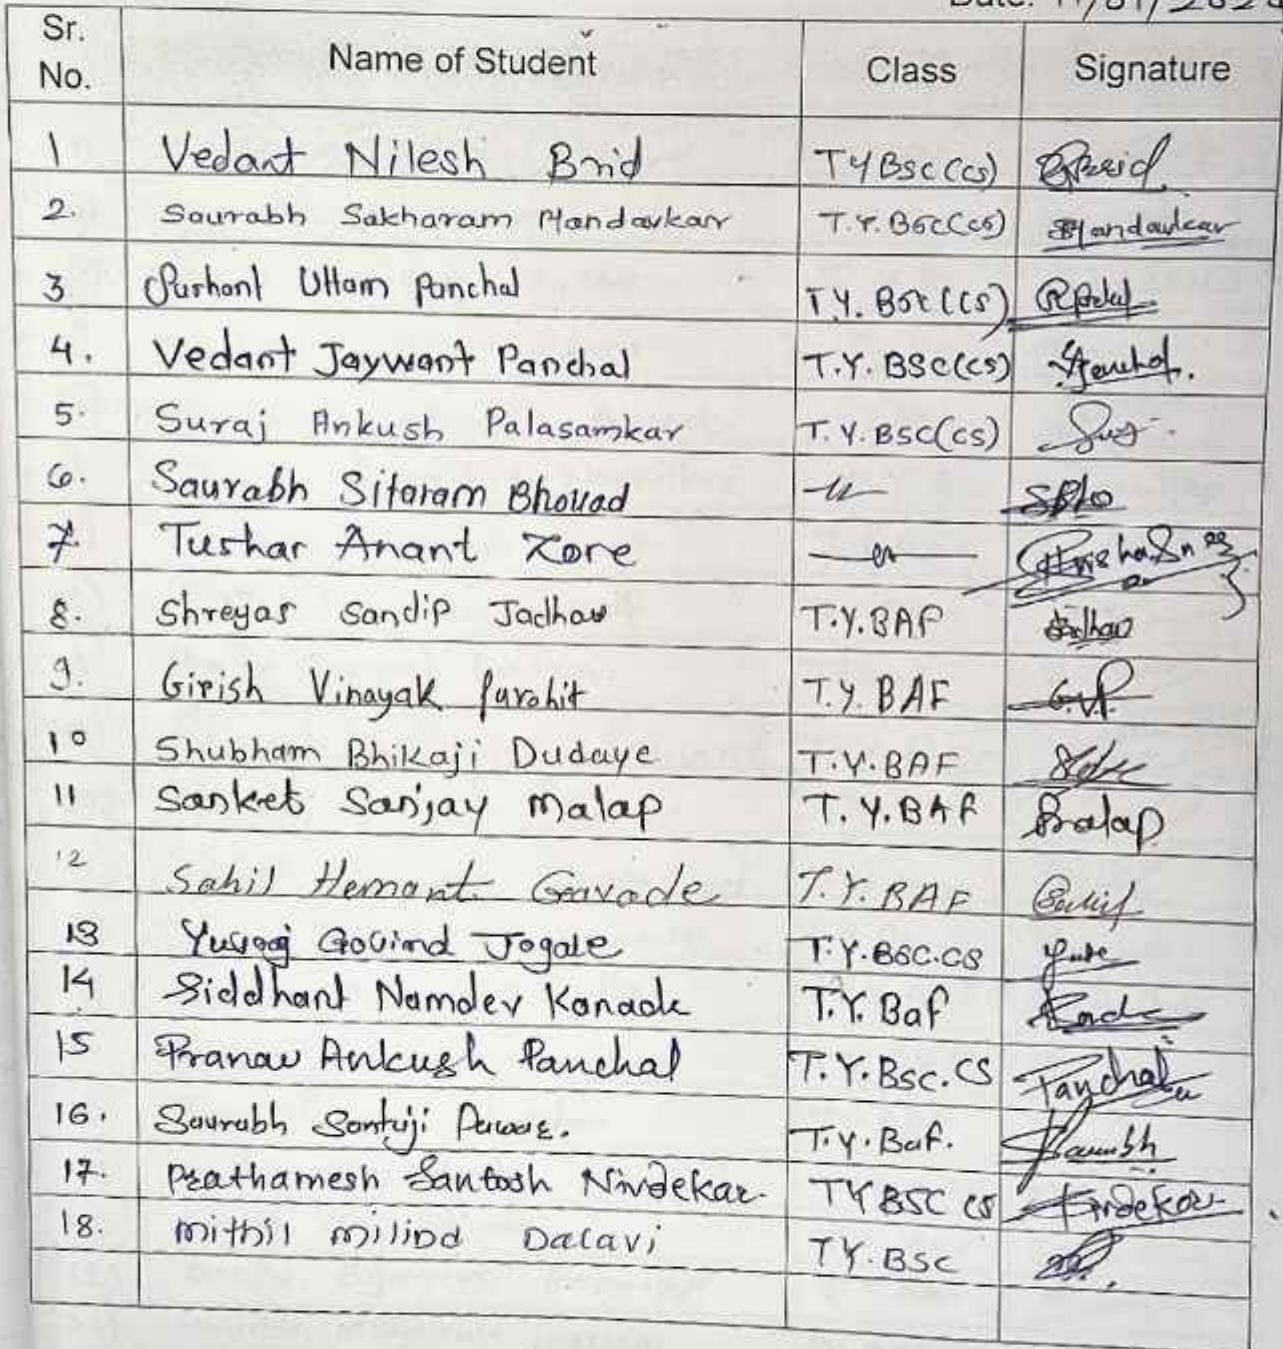 Date: 11/01/202
Sr. No. Name of Student Class Signature
1 Vedant Nilesh Brid T Y BSC (CS) Brid
2. Saurabh Sakharam Mandavkar T.Y. BSC (CS) Mandavkar
3 Sushant Uttam Panchal T.Y. BSC (CS)
4. Vedant Jaywant Panchal T.Y. BSC (CS) Panchal.
5. Suraj Ankush Palasamkar T.Y. BSC (CS)
6. Saurabh Sitaram Bhovad —〃— SBho
7. Tushar Anant Zore —〃—
8. Shreyas Sandip Jadhav T.Y. BAF Jadhav
9. Girish Vinayak Purohit T.Y. BAF G.V.P.
10 Shubham Bhikaji Dudaye T.Y. BAF
11 Sanket Sanjay Malap T.Y. BAF Malap
12 Sahil Hemant Gavade T.Y. BAF
13 Yuvraj Govind Jogale T.Y. BSC.CS
14 Siddhant Namdev Kanade T.Y. Baf
15 Pranav Ankush Panchal T.Y. Bsc. CS Panchal
16. Saurabh Santuji Pawar. T.Y. Baf. Saurabh
17. Prathamesh Santosh Nivdekar. TY BSC CS Nivdekar
18. Mithil Milind Dalavi TY. BSC